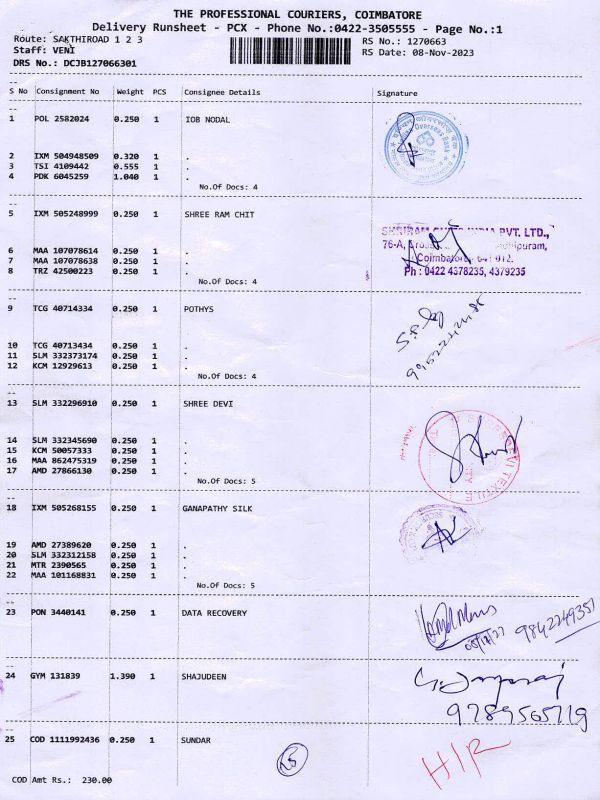 THE PROFESSIONAL COURIERS, COIMBATORE
Delivery Runsheet - PCX - Phone No.:0422-3505555 - Page No.:1
Route: SAKTHIROAD 1 2 3 RS No.: 1270663
Staff: VENI RS Date: 08-Nov-2023
DRS No.: DCJB127066301
S No Consignment No Weight PCS Consignee Details Signature
1 POL 2582024 0.250 1 IOB NODAL
2 IXM 504948509 0.320 1 .
3 TSI 4109442 0.555 1 .
4 PDK 6045259 1.040 1 .
No.Of Docs: 4
5 IXM 505248999 0.250 1 SHREE RAM CHIT
SHRIRAM CHITS INDIA PVT. LTD.,
6 MAA 107078614 0.250 1 .
76-A,
7 MAA 107078638 0.250 1 .
Coimbatore - 641 012.
8 TRZ 42500223 0.250 1 .
Ph : 0422 4378235, 4379235
No.Of Docs: 4
9 TCG 40714334 0.250 1 POTHYS
10 TCG 40713434 0.250 1 .
11 SLM 332373174 0.250 1 .
12 KCM 12929613 0.250 1 .
No.Of Docs: 4
13 SLM 332296910 0.250 1 SHREE DEVI
14 SLM 332345690 0.250 1 .
15 KCM 50057333 0.250 1 .
16 MAA 862475319 0.250 1 .
17 AMD 27866130 0.250 1 .
No.Of Docs: 5
18 IXM 505268155 0.250 1 GANAPATHY SILK
19 AMD 27389620 0.250 1 .
20 SLM 332312158 0.250 1 .
21 MTR 2390565 0.250 1 .
22 MAA 101168831 0.250 1 .
No.Of Docs: 5
23 PON 3440141 0.250 1 DATA RECOVERY
9842249351
24 GYM 131839 1.390 1 SHAJUDEEN
9789565719
25 COD 1111992436 0.250 1 SUNDAR
25
H/R
COD Amt Rs.: 230.00